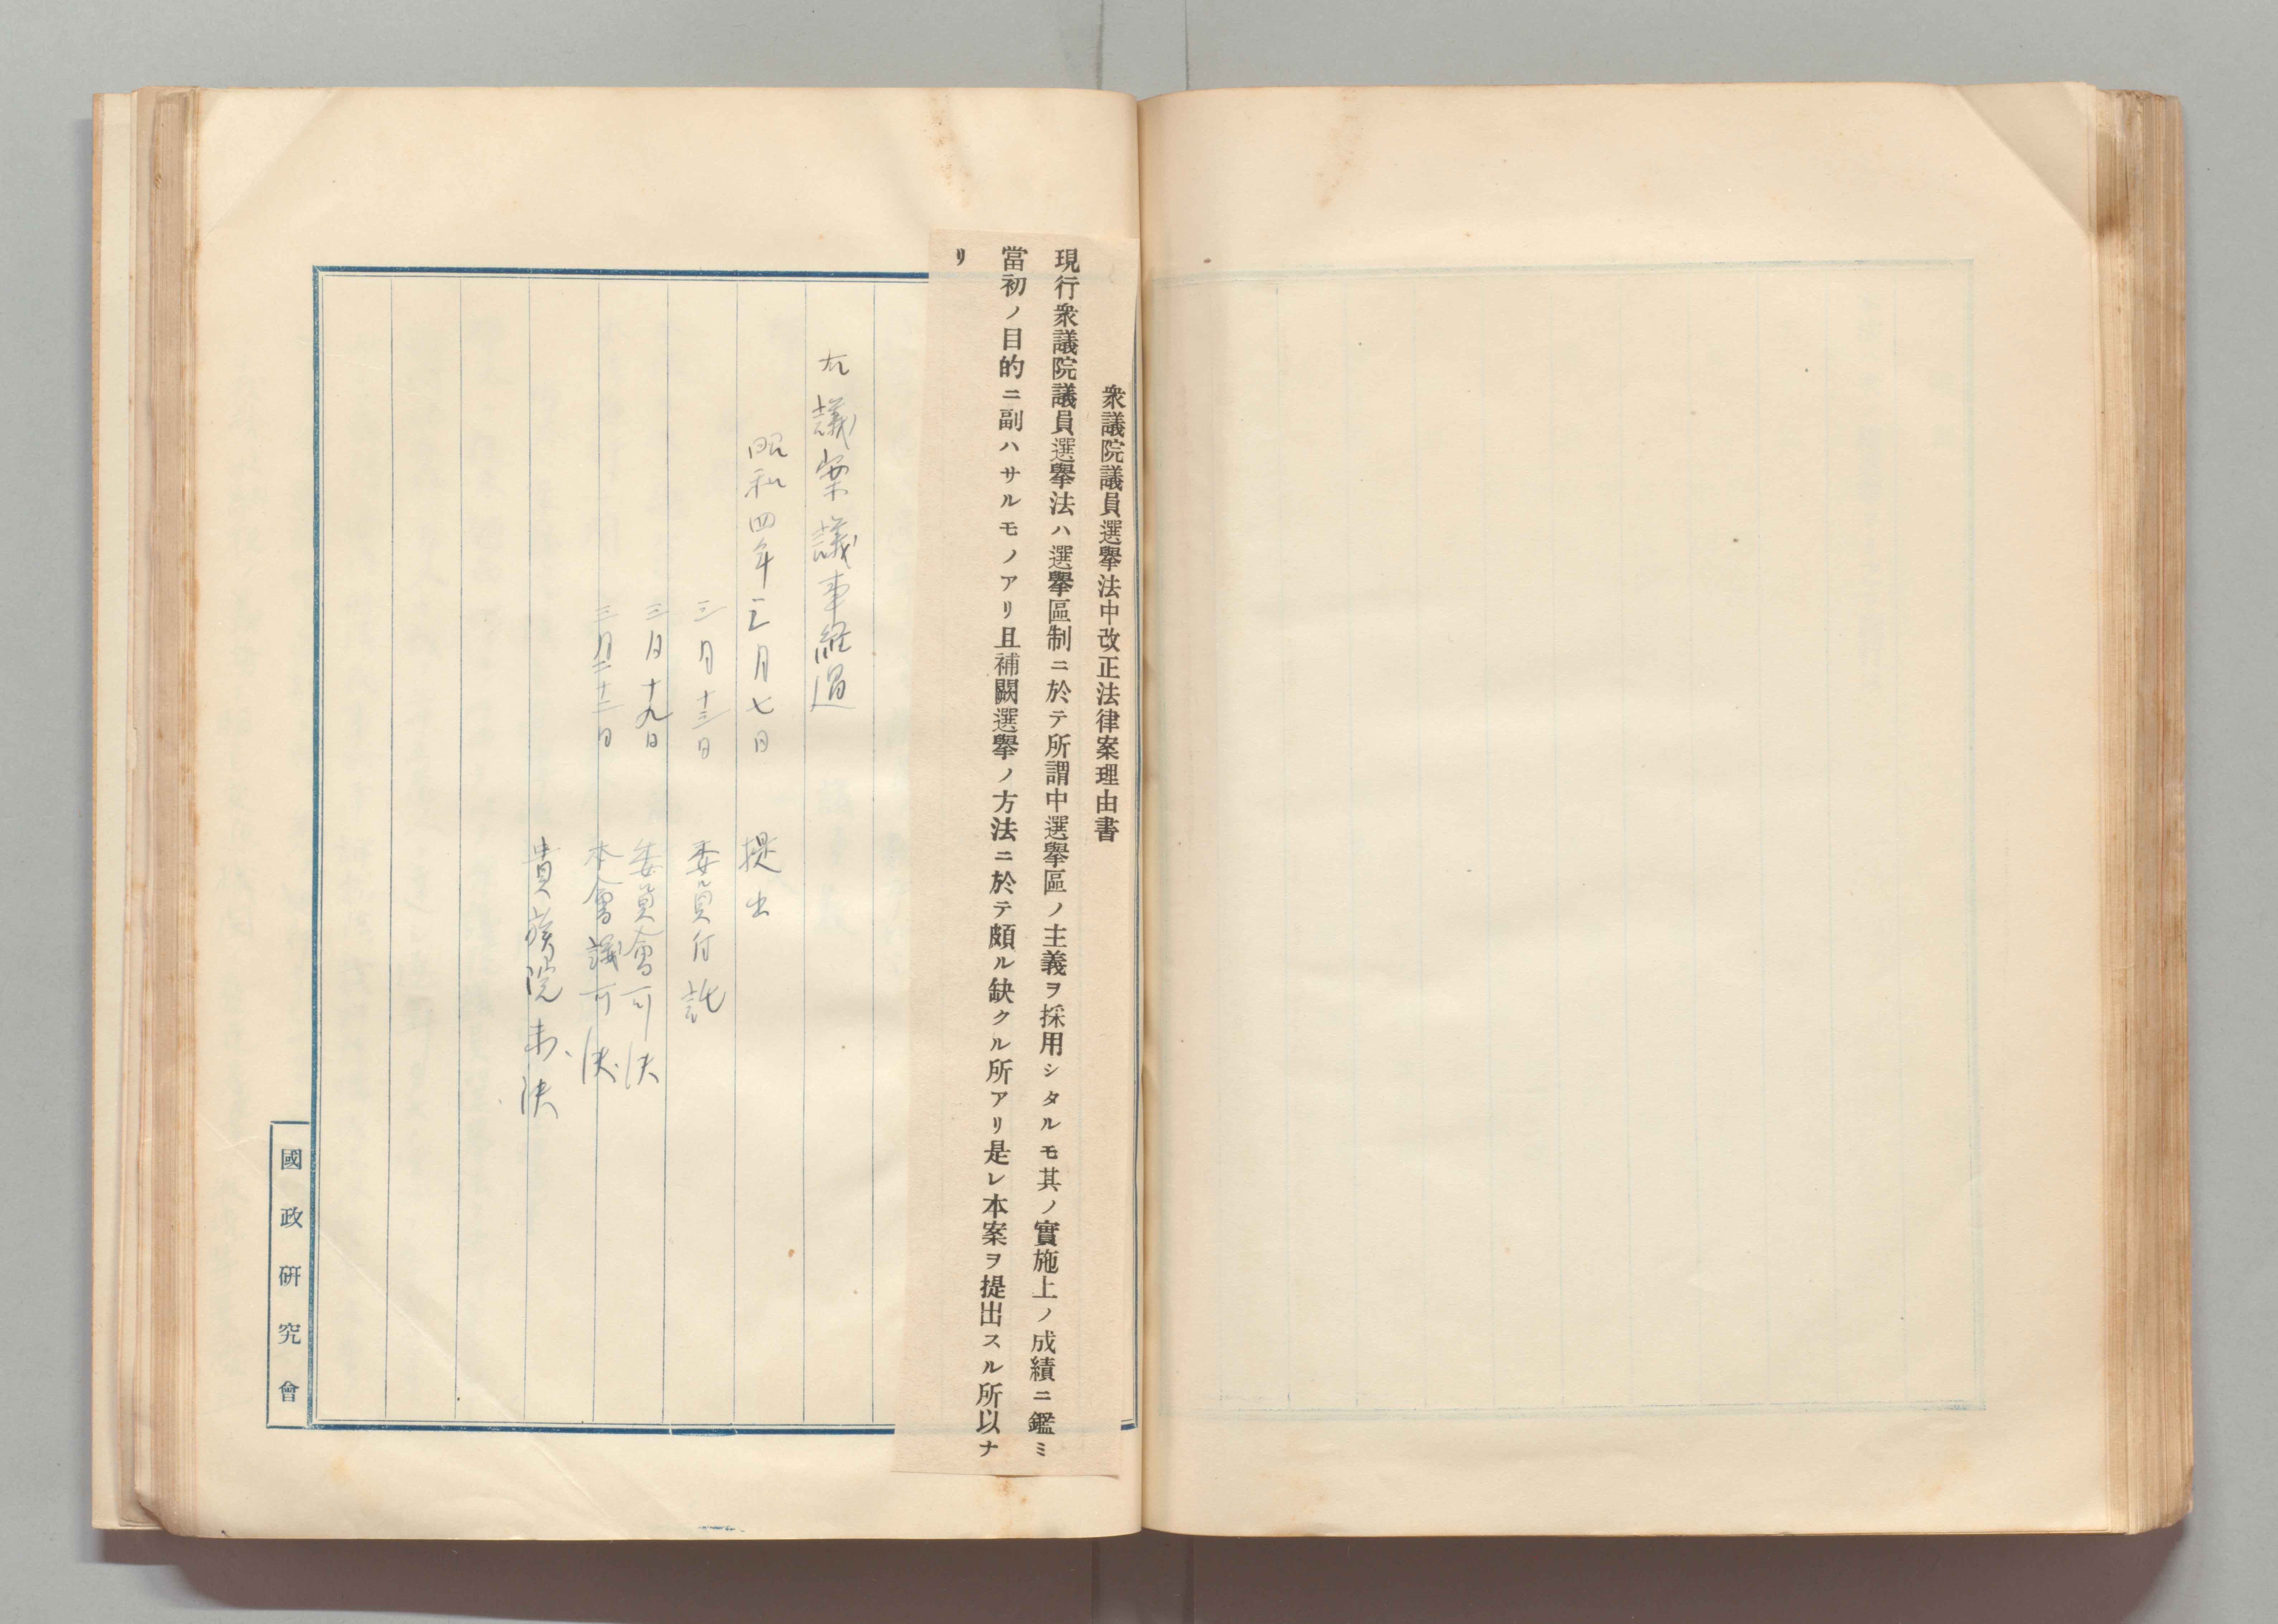 衆議院議員選擧法中改正法律案理由書
現行衆議院議員選擧法ハ選擧區制ニ於テ所謂中選擧區ノ主義ヲ採用シタルモ其ノ實施上ノ成績ニ鑑ミ
當初ノ目的ニ副ハサルモノアリ且補闕選擧ノ方法ニ於テ頗ル缺クル所アリ是レ本案ヲ提出スル所以ナ
リ
右議案議事経過
昭和四年三月七日 提出
三月十三日 委員付託
三月十九日 委員會可決
三月二十二日 本會議可決
貴族院未決
國政研究會